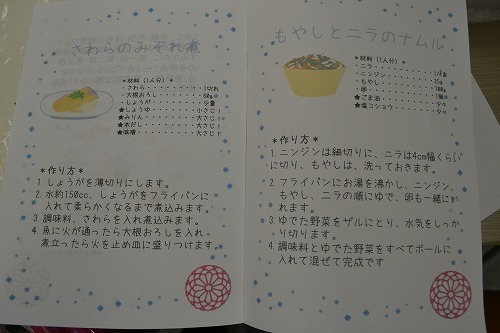 さわらのみぞれ煮
*材料(1人分)*
・さわら・・・・・・・・・1切れ
・大根おろし・・・・・・・50g
・しょうが・・・・・・・・少量
★しょうゆ・・・・・・小さじ1
★みりん・・・・・・・大さじ1
★本だし・・・・・・・大さじ
★味噌・・・・・・・・大さじ
*作り方*
1. しょうがを薄切りにします。
2. 水約150cc、しょうがをフライパンに
入れて柔らかくなるまで煮込みます。
3. 調味料、さわらを入れ煮込みます。
4. 魚に火が通ったら大根おろしを入れ
煮立ったら火を止め皿に盛りつけます。
もやしとニラのナムル
*材料(1人分)*
・ニラ・・・・・・・・・1/4束
・ニンジン・・・・・・・25g
・もやし・・・・・・・・100g
・卵・・・・・・・・・・1個
★ごま油・・・・・・・・少々
★塩コショウ・・・・・・少々
*作り方*
1. ニンジンは細切りに、ニラは4cm幅くらい
に切り、もやしは、洗っておきます。
2. フライパンにお湯を沸かし、ニンジン、
もやし、ニラの順にゆで、卵も一緒にい
れます。
3. ゆでた野菜をザルにとり、水気をしっか
り切ります。
4. 調味料とゆでた野菜をすべてボールに
入れて混ぜて完成です